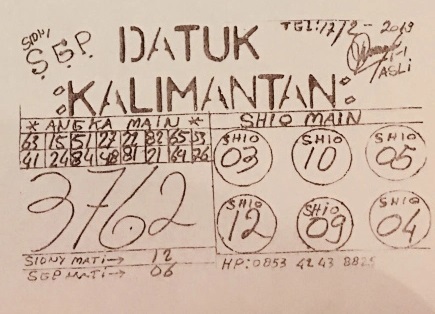 SIDNI
S.G.P.
DATUK
TGL:17/2-2019
KALIMANTAN
ASLI
* ANGKA MAIN *
SHIO MAIN
63 15 51 27 22 82 65 53
41 24 84 48 81 21 64 26
SHIO 03
SHIO 10
SHIO 05
3762
SHIO 12
SHIO 09
SHIO 04
SIDNY MATI→ 12
SGP MATI→ 06
HP:0853 4243 8825